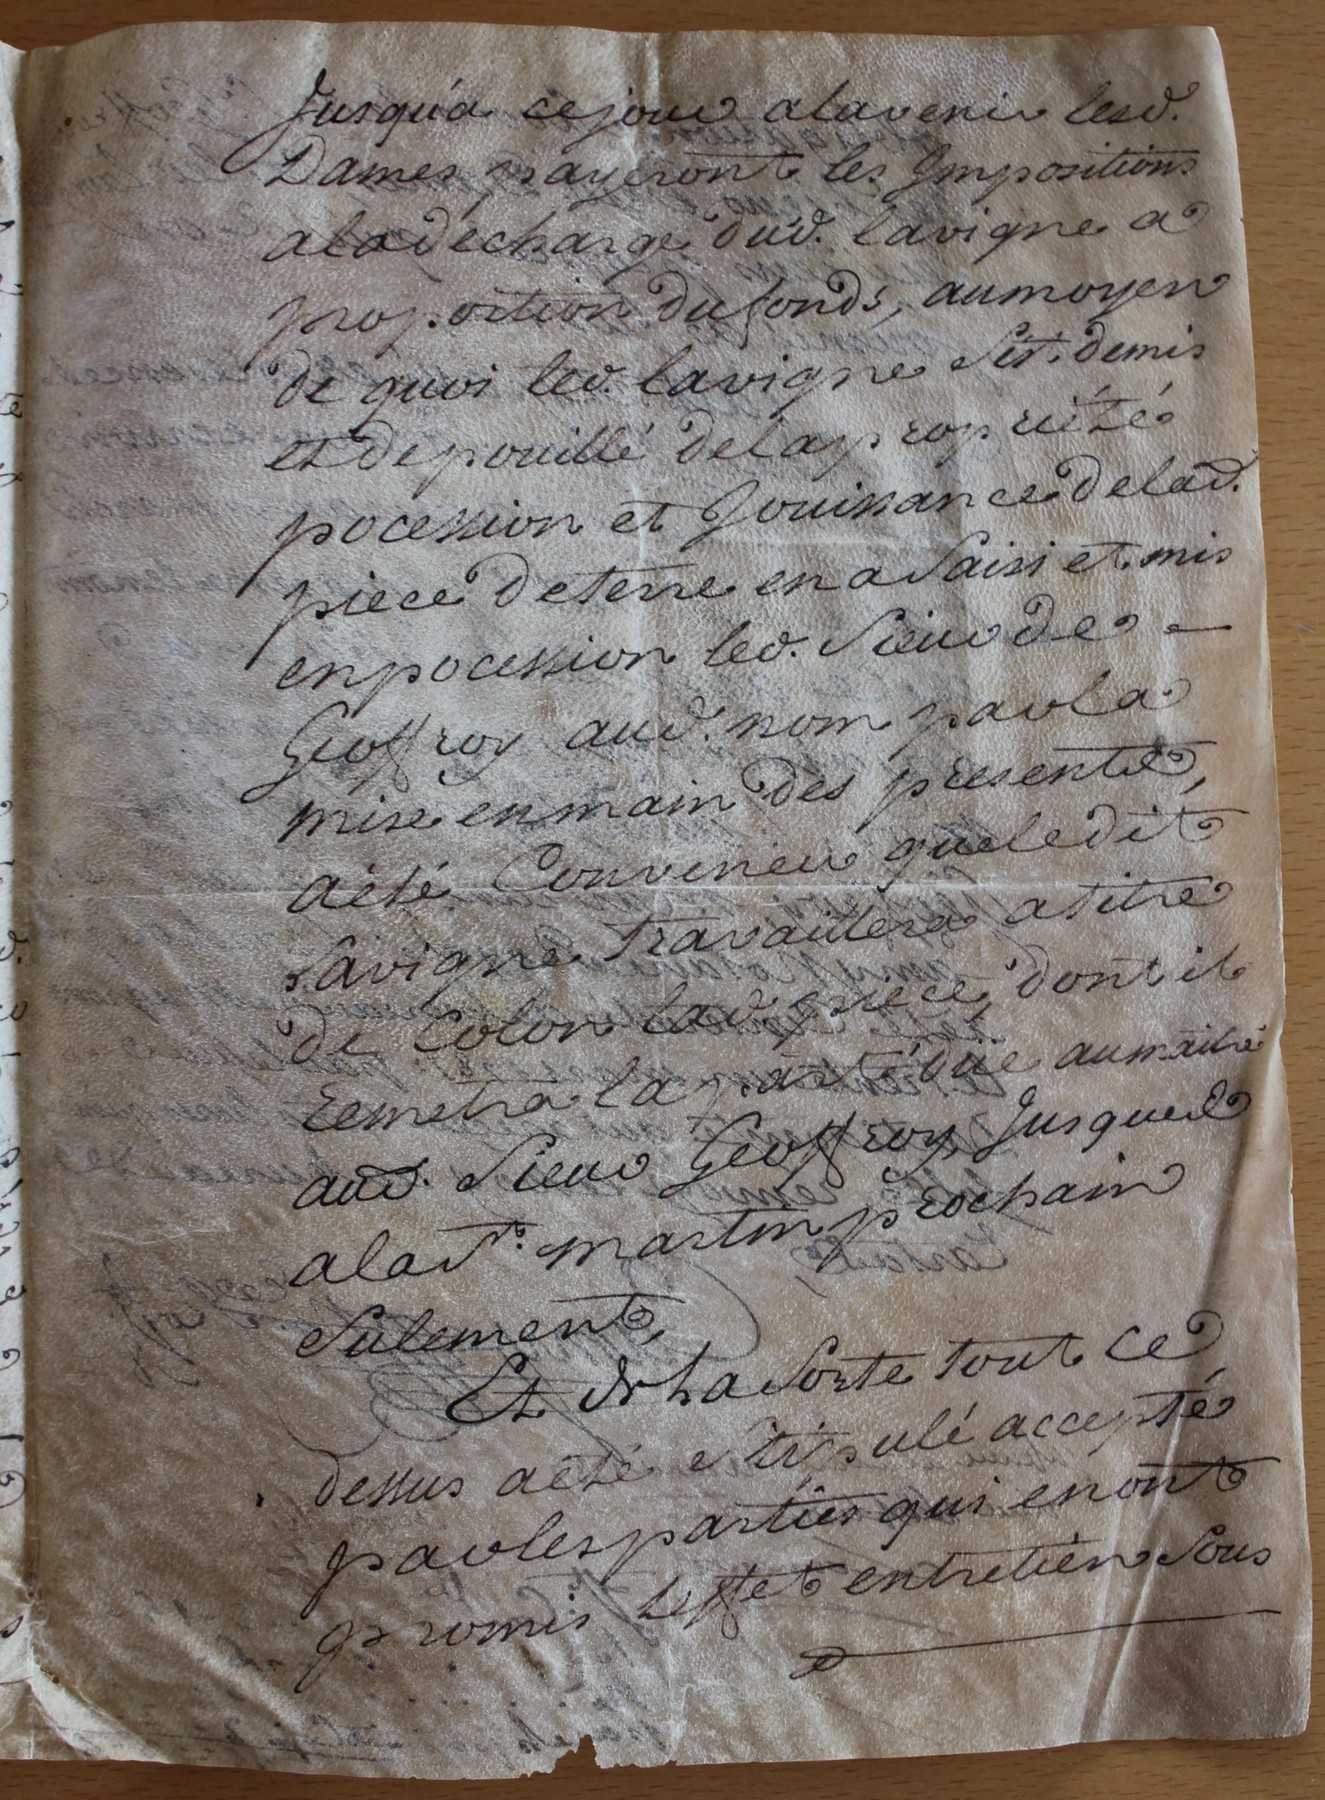 Jusqu'a ce jour a lavenir lesd.
Dames payeront les Impositions
a la décharge dud. lavigne a
proportion du fonds, au moyen
de quoi led. lavigne S'est demis
et depouillé de la propriété
pocession et Jouissance de lad.
piece de terre en a Saisi et mis
en pocession led. Sieur de
Geoffroy aud. nom par la
mise en main des presente,
a été Conveneu que ledit
Lavigne travaillera a titre
de Colon lad. piece, dont il
remetra la parté düe au maitre
aud. Sieur Geoffroy Jusques
a la St. martin prochain
Sulement,
Et de la Sorte tout Ce
dessus a été Stipulé accepté
par les parties qui en ont
promis Leffet entretien Sous